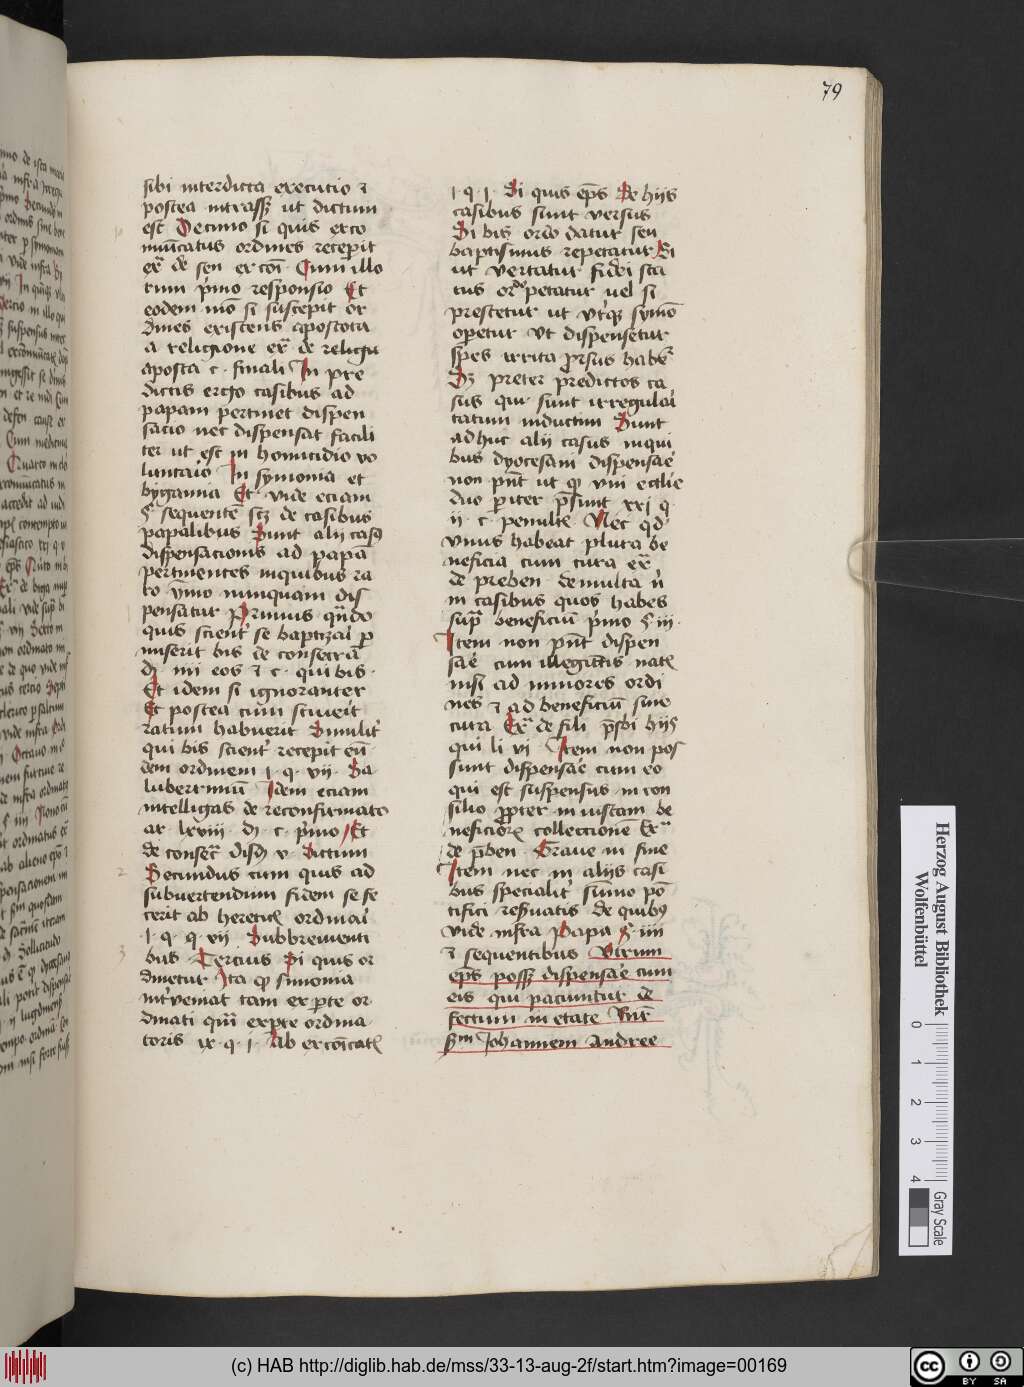 79
sibi interdicta executio ⁊
postea intrassꝫ ut dictum
est Decimo si quis exco
mūicatus ordines recepit
ex̄ de sen excōi Cum illo
rum p̄mo responsio Et
eodem mō si suscepit or
dines existens apostota
a religione ex̄ de religi
aposta c finali In pre
dictis ergo casibus ad
papam pertinet dispen
sacio nec dispensat facili
ter ut est in homicidio vo
luntaio In symonia et
bygamia Et vide eciam
§ sequentē scꝫ de casibus
papalibus Sunt alij casꝯ
dispensacionis ad papā
pertinentes inquibus ra
ro ymo nunquam dis
pensatur Primus qn̄do
quis scient̄ se baptizai p
miserit bis de consecrā
dꝫ iiii eos ⁊ c qui bis
Et idem si ignoranter
Et postea cum sciueit
ratum habuerit Similit̄
qui bis scient̄ recepit eū
dem ordinem i q vii Sa
lubertimū Idem eciam
intelligas de reconfirmato
ar lxviii dꝫ c p̄mo Et
de consec̄ disꝫ v Dictum
2 Secundus cum quis ad
subuertendum fidem se fe
cerit ab hereticꝫ ordinai
i q q vij Subbreuienti
3 bus Tercius Si quis or
dinetur Ita qꝫ simonia
intveniat tam ex pte or
dinati q̄ȝ ex pte ordina
toris ix q i Ab excōicatꝫ
i q i Si quis ep̄s De hijs
casibus sunt versus
Si bis ordo datur seu
baptismus repetatur Si
ut vertatur fidei sta
tus ordo petatur vel si
prestetur ut vtrqꝫ symō
operetur Ut dispensetur
spes irrita prsus habet
Sꝫ preter predictos ca
sus qui sunt irregulai
tatum inductim Sunt
adhuc alij casus inqui
bus dyocesani dispensāe
non pn̄t ut qꝫ viii ecclie
duo piter p̄sunt xxi q
ii c penultꝫ Nec qd
vnus habeat plura be
neficia cum cura ex̄
de preben de multa n̄
in casibus quos habes
sup̄ beneficiū p̄mo § iii
Item non pn̄t dispen
sāe cum illegittis natꝫ
nisi ad minores ordi
nes ⁊ ad beneficiū sine
cura Ex̄ de fili p̄sbi hijs
qui li vi Item non pos
sunt dispensāe cum eo
qui est suspensus in con
silio propter in iustam be
neficiorꝫ collectione Ex̄
de p̄ben Graue in fine
Item nec in alijs casi
bus specialit̄ sūmo pō
tifici resuatis de quibꝯ
vide infra Papa § iiii
⁊ sequentibus Utrum
ep̄s possꝫ dispensāe cum
eis qui paciuntur de
fectum in etate Br̄
sm Johannem Andree
Herzog August Bibliothek
Wolfenbüttel
0 1 2 3 4
Gray Scale
(c) HAB http://diglib.hab.de/mss/33-13-aug-2f/start.htm?image=00169
cc BY SA